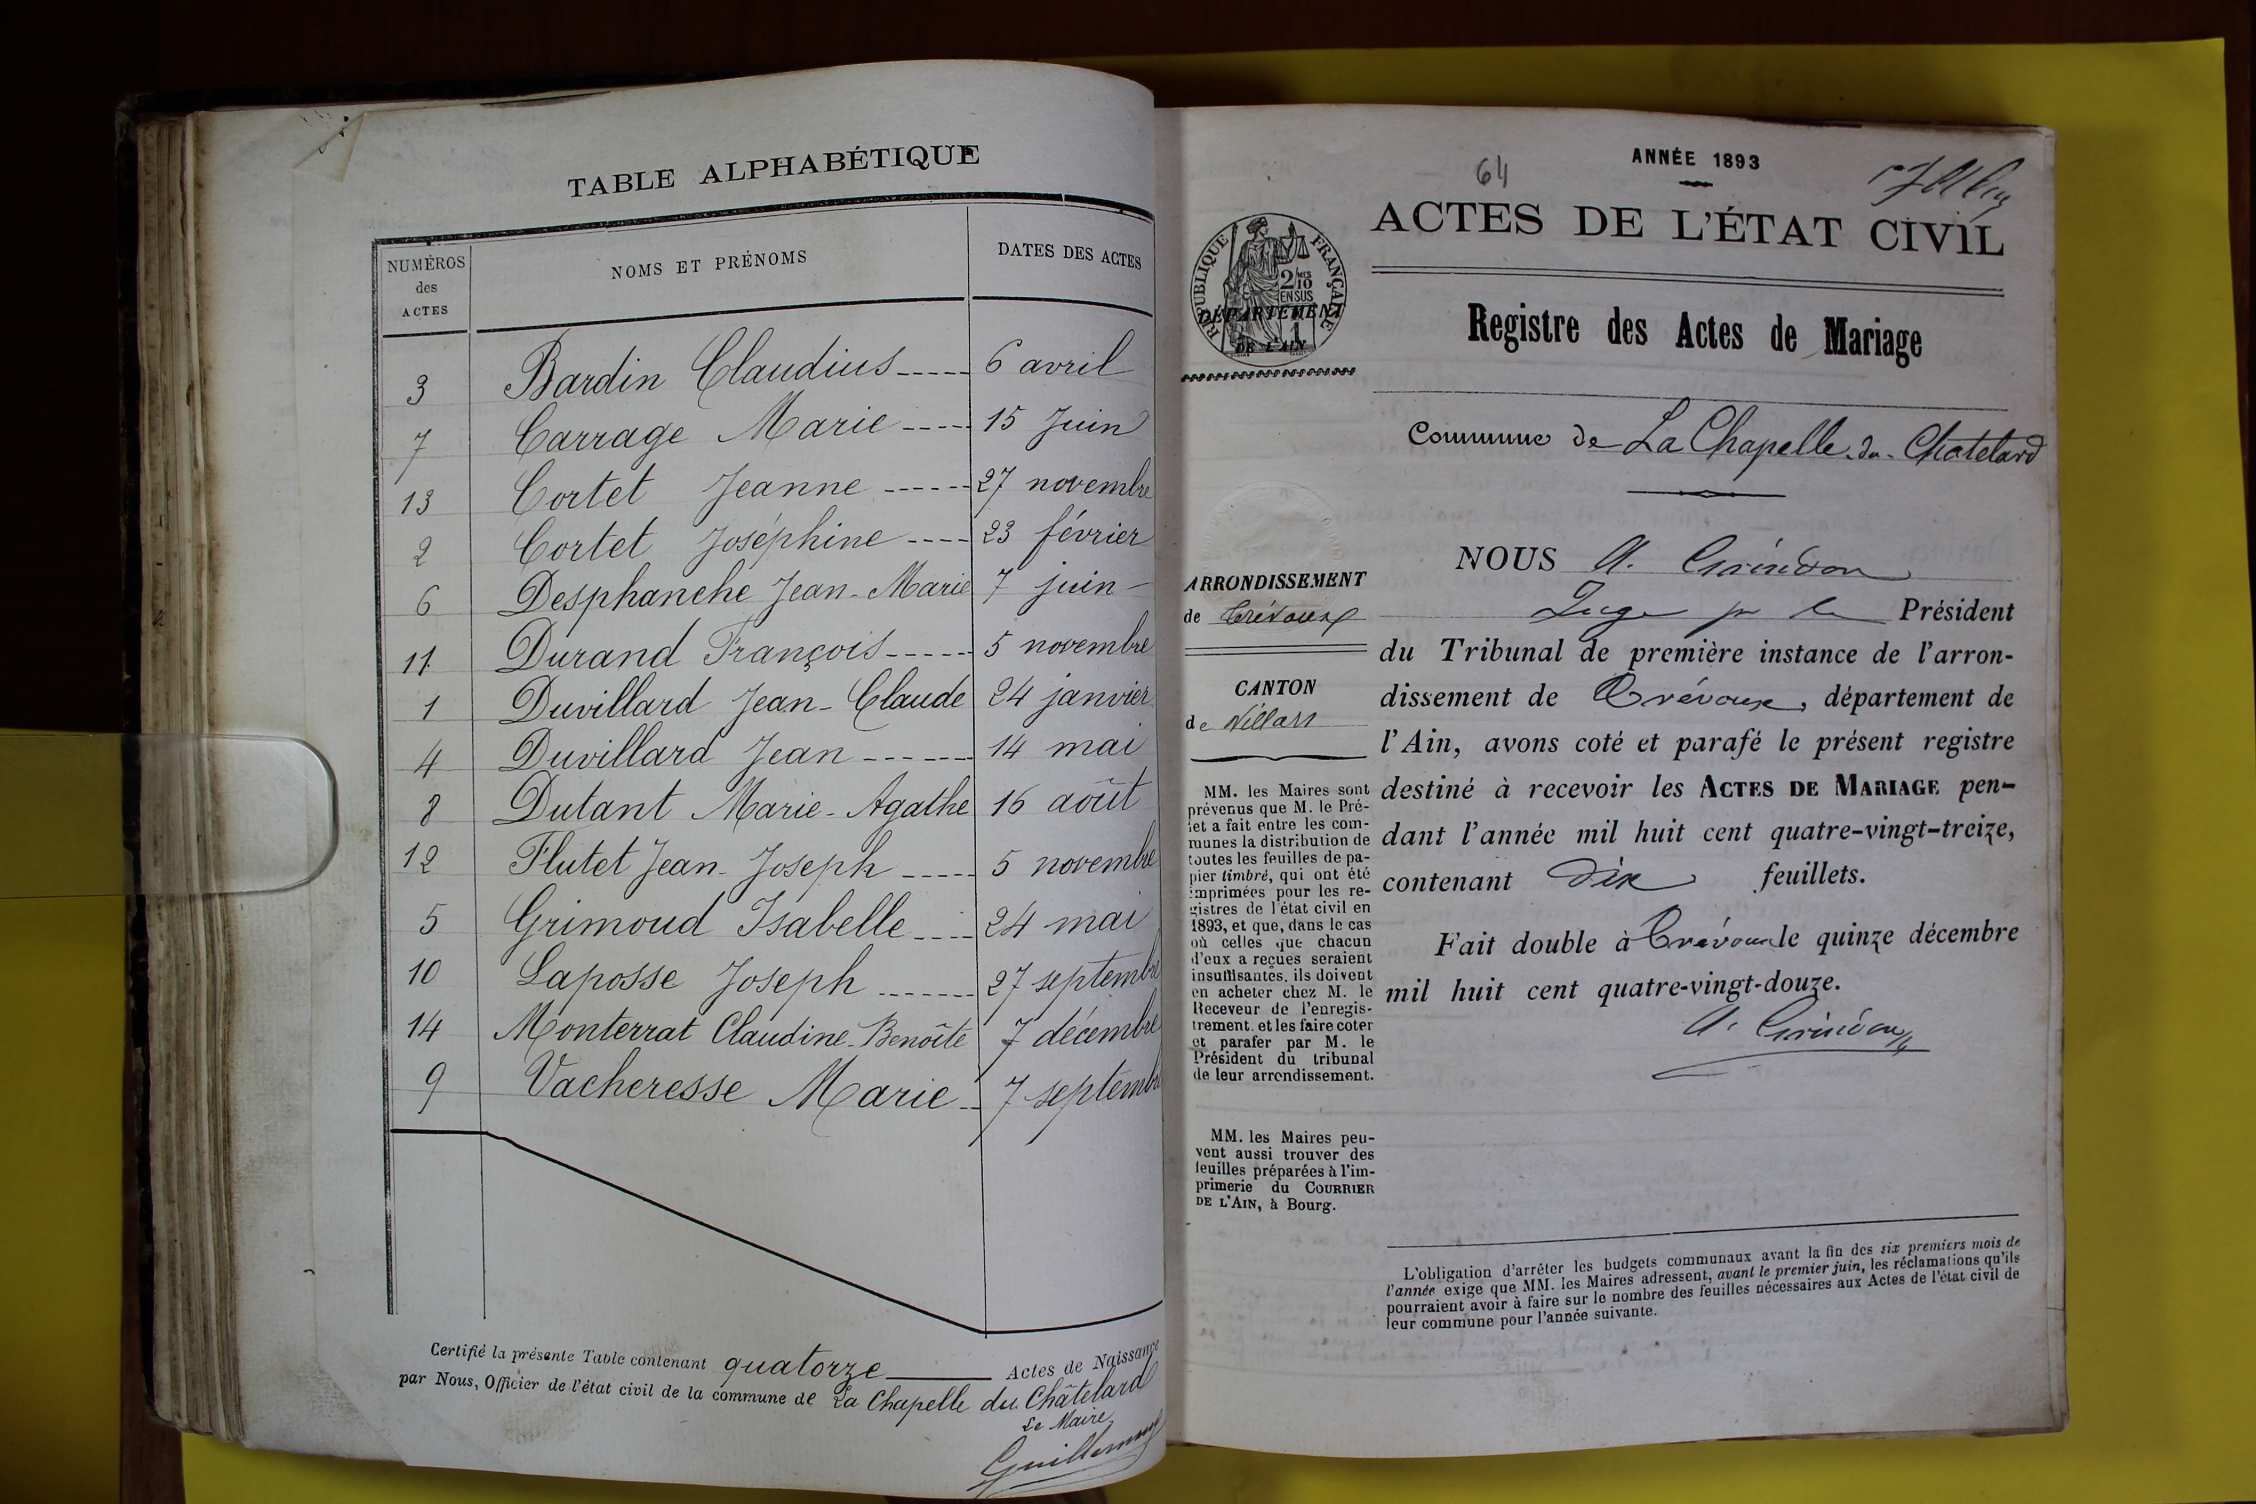 TABLE ALPHABÉTIQUE
NUMÉROS des ACTES
NOMS ET PRÉNOMS
DATES DES ACTES
3 Bardin Claudius 6 avril
7 Carrage Marie 15 Juin
13 Cortet Jeanne 27 novembre
2 Cortet Joséphine 23 février
6 Desphanche Jean-Marie 7 juin
11 Durand François 5 novembre
1 Duvillard Jean-Claude 24 janvier
4 Duvillard Jean 14 mai
8 Dutant Marie-Agathe 16 août
12 Flutet Jean-Joseph 5 novembre
5 Grimoud Isabelle 24 mai
10 Laposse Joseph 27 septembre
14 Monterrat Claudine-Benoîte 7 décembre
9 Vacheresse Marie 7 septembre
Certifié la présente Table contenant quatorze Actes de Naissance
par Nous, Officier de l'état civil de la commune de La Chapelle du Châtelard
Le Maire
64
ANNÉE 1893
ACTES DE L'ÉTAT CIVIL
RÉPUBLIQUE FRANÇAISE
2/10 EN SUS
DÉPARTEMENT
DE L'AIN
Registre des Actes de Mariage
Commune de La Chapelle-du-Chatelard
ARRONDISSEMENT
de Trévoux
CANTON
de Villars
MM. les Maires sont
prévenus que M. le Pré-
fet a fait entre les com-
munes la distribution de
toutes les feuilles de pa-
pier timbré, qui ont été
imprimées pour les re-
gistres de l'état civil en
1893, et que, dans le cas
où celles que chacun
d'eux a reçues seraient
insuffisantes, ils doivent
en acheter chez M. le
Receveur de l'enregis-
trement, et les faire coter
et parafer par M. le
Président du tribunal
de leur arrondissement.
MM. les Maires peu-
vent aussi trouver des
feuilles préparées à l'im-
primerie du COURRIER
DE L'AIN, à Bourg.
NOUS A. Grindon
Juge pr le Président
du Tribunal de première instance de l'arron-
dissement de Trévoux, département de
l'Ain, avons coté et parafé le présent registre
destiné à recevoir les ACTES DE MARIAGE pen-
dant l'année mil huit cent quatre-vingt-treize,
contenant dix feuillets.
Fait double à Trévoux le quinze décembre
mil huit cent quatre-vingt-douze.
A. Grindon
L'obligation d'arrêter les budgets communaux avant la fin des six premiers mois de
l'année exige que MM. les Maires adressent, avant le premier juin, les réclamations qu'ils
pourraient avoir à faire sur le nombre des feuilles nécessaires aux Actes de l'état civil de
leur commune pour l'année suivante.